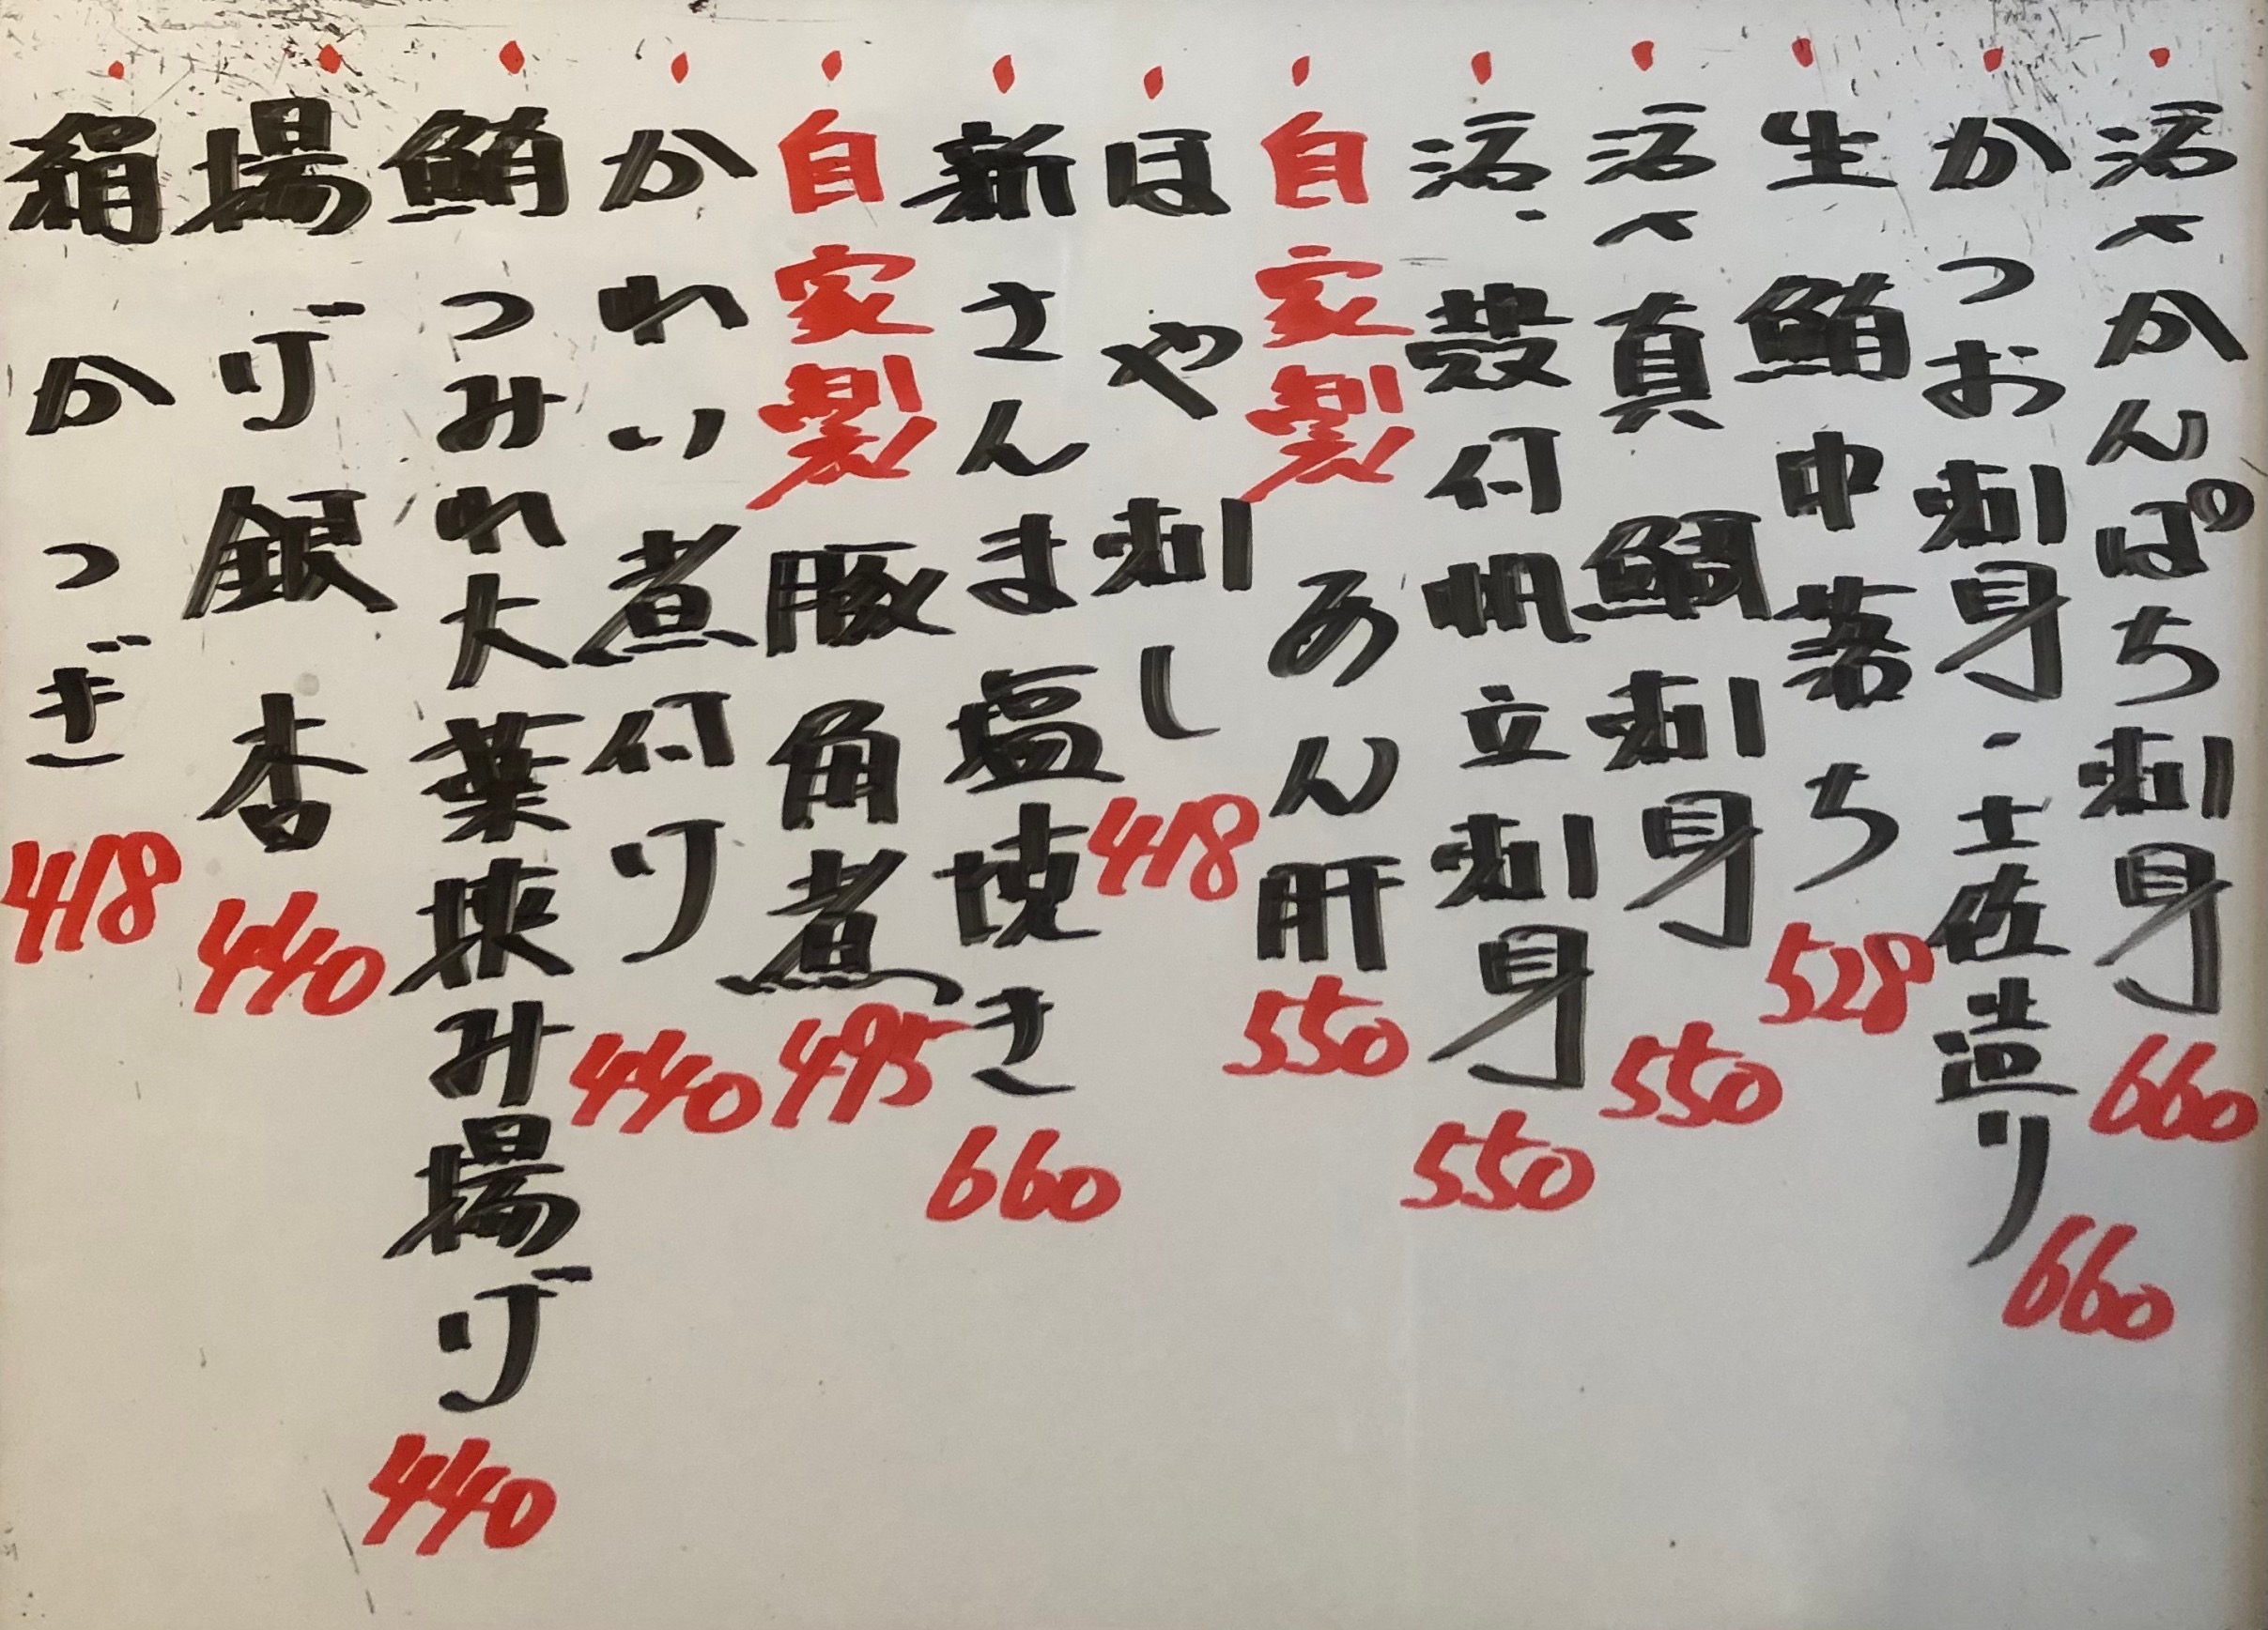 活〆かんぱち刺身 660
かつお刺身・土佐造り 660
生鮪中落ち 528
活〆真鯛刺身 550
活・殻付帆立刺身 550
自家製あん肝 550
ほや刺し 418
新さんま塩焼き 660
自家製豚角煮 495
かれい煮付け 440
鮪つみれ大葉挟み揚げ 440
揚げ銀杏 440
絹かつぎ 418